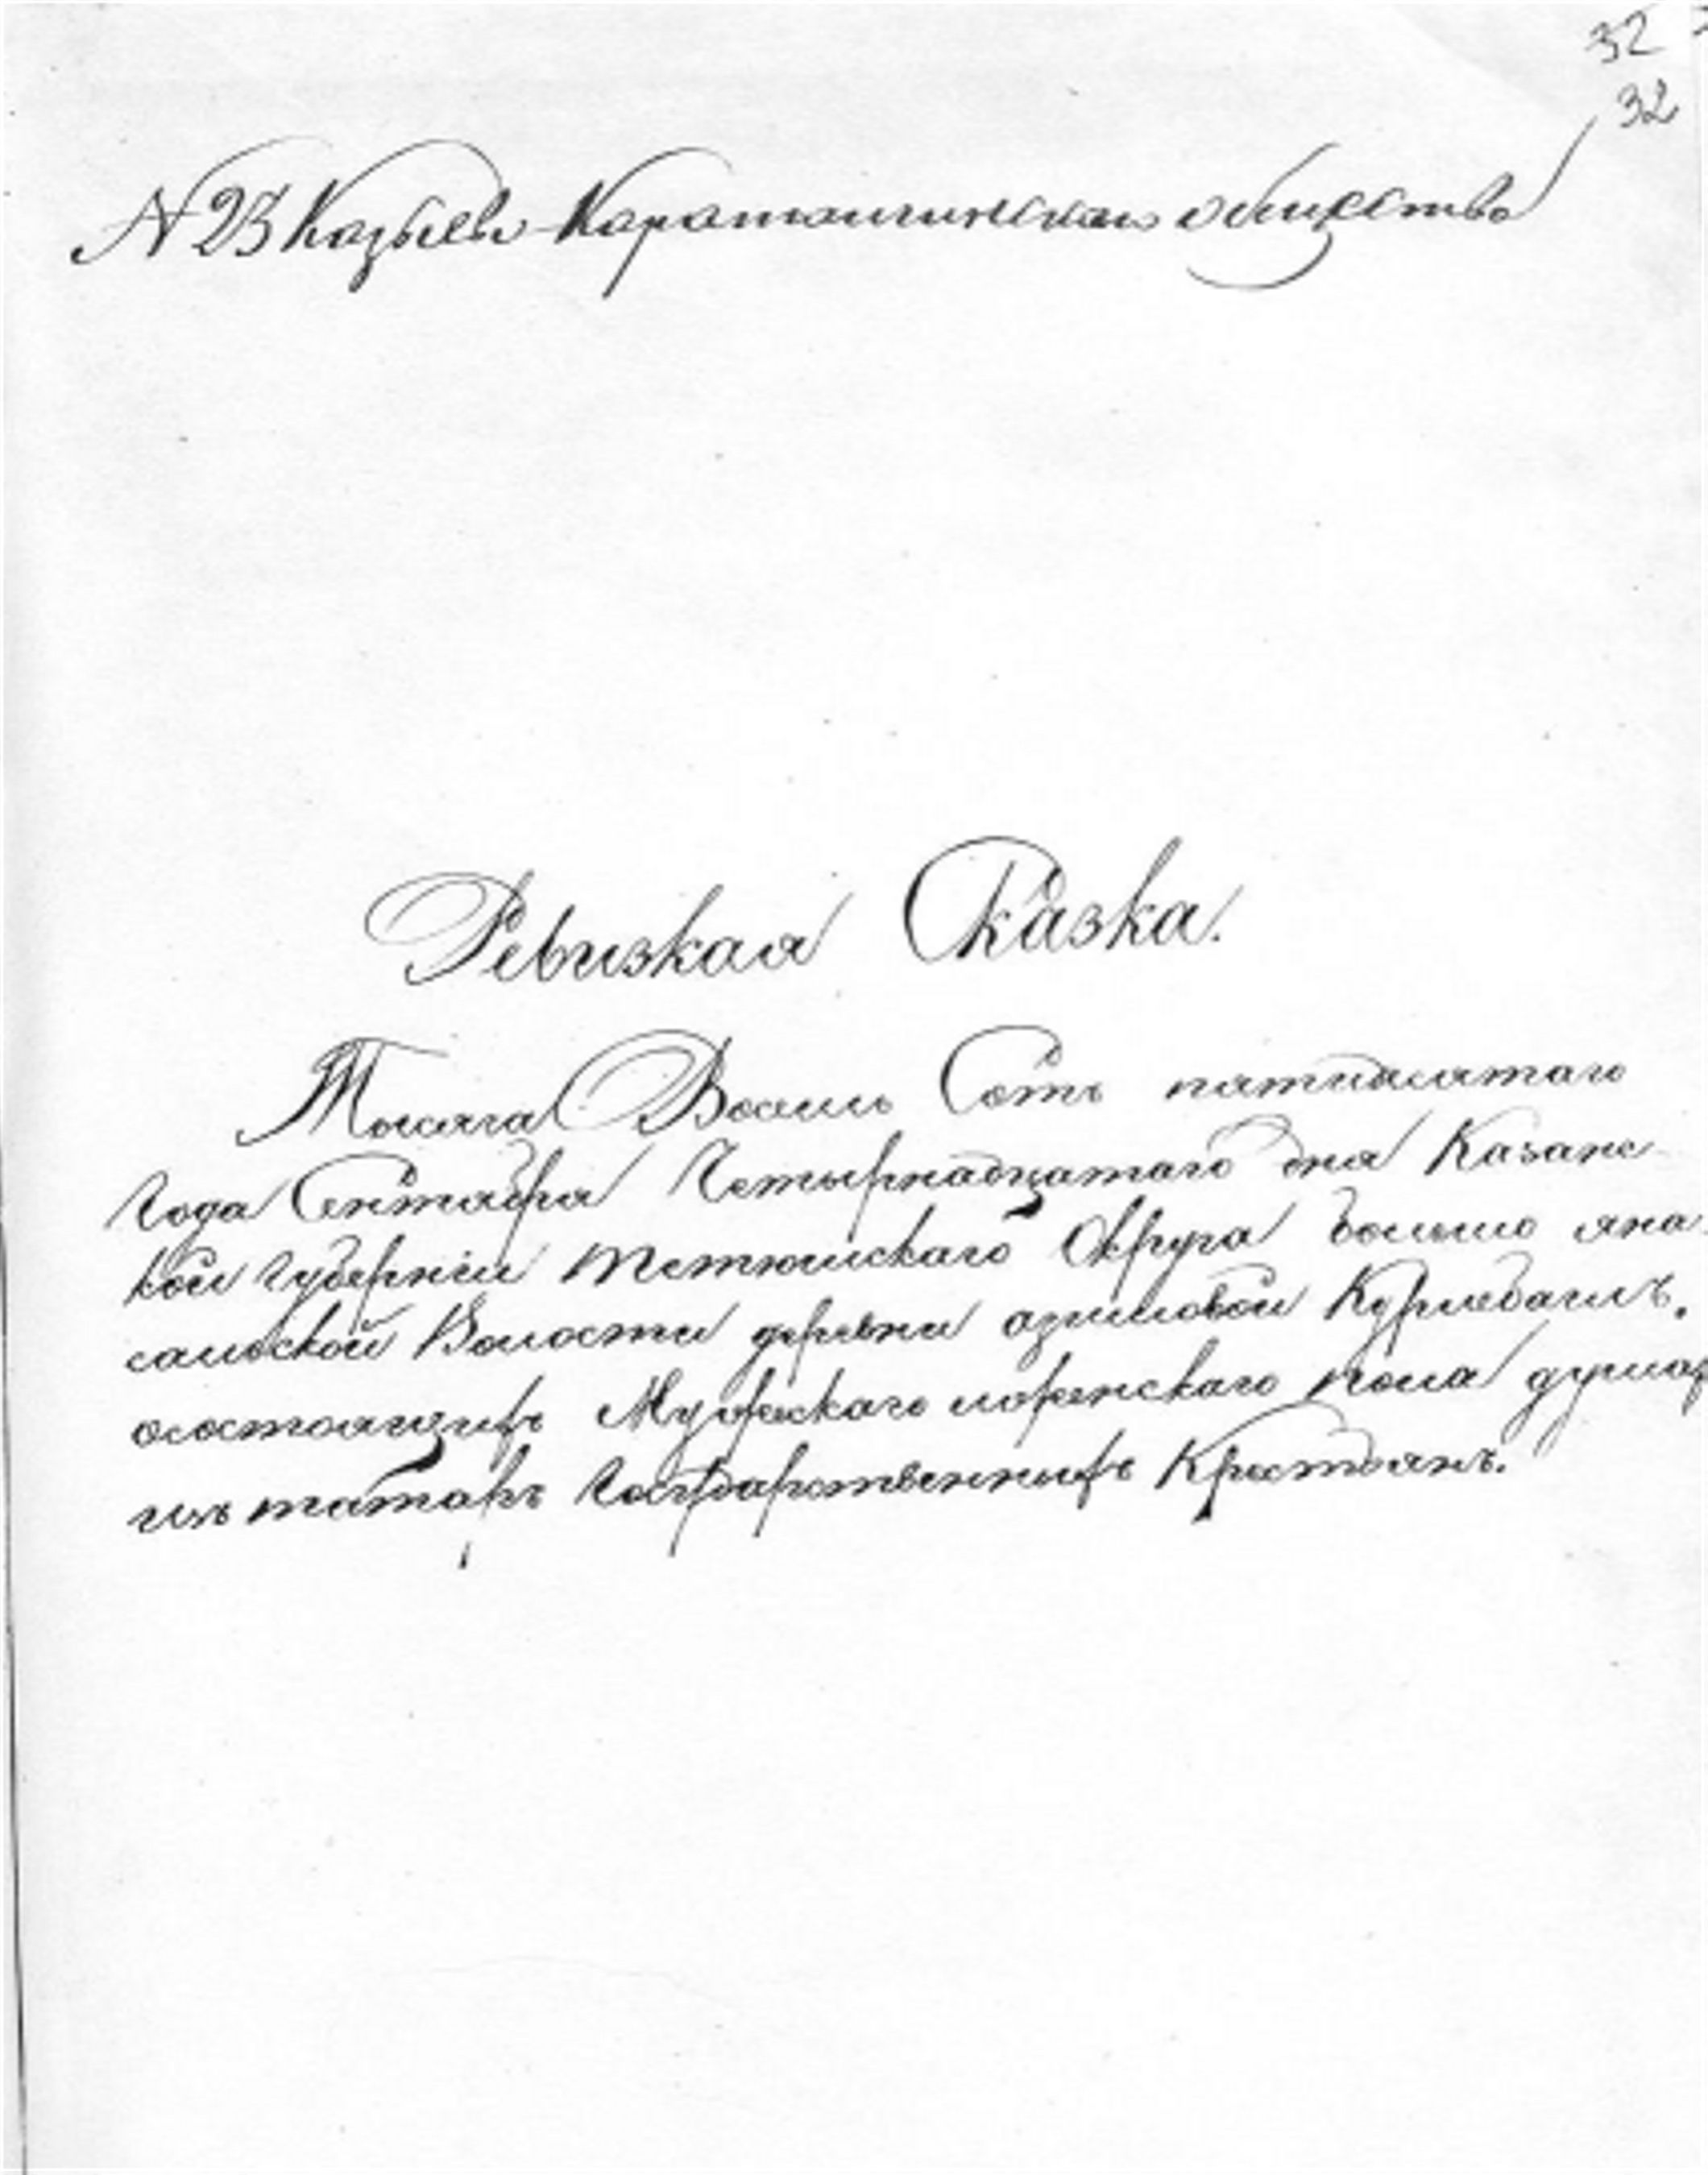 32
32
N 23 Казыевы-Каратаигинскаго общества
Ревизкая Сказка.
Тысяча Восемь Сотъ пятидесятаго
Года Сентября Четырнадцатаго дня Казанс
кой Губерніи Тетюшскаго Округа больше яна
сальской Волости деревни азимовой Курлебашъ.
осостоящихъ Мужескаго иженскаго пола душах
изъ татаръ Государственныхъ Крестьянъ.